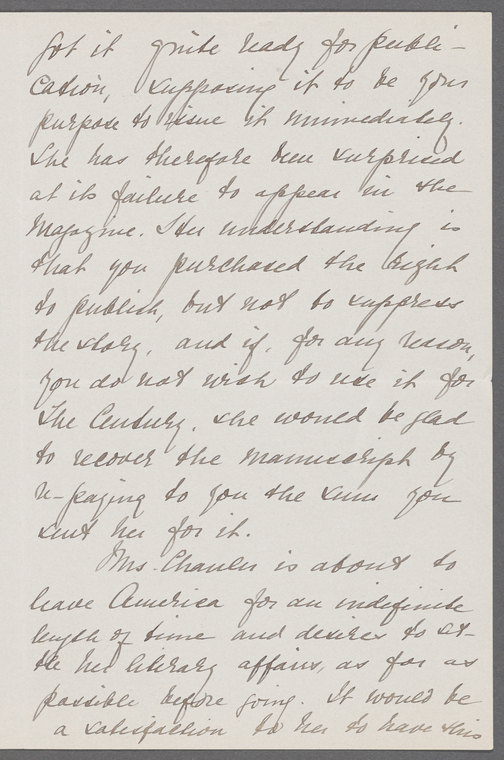 got it quite ready for publi-
cation, supposing it to be your
purpose to issue it immediately.
She has therefore been surprised
at its failure to appear in the
Magazine. Her understanding is
that you purchased the right
to publish, but not to suppress
the story, and if, for any reason,
you do not wish to use it for
The Century, she would be glad
to recover the manuscript by
re-paying to you the sum you
sent her for it.
Mrs. Chanler is about to
leave America for an indefinite
length of time and desires to set-
tle her literary affairs, as far as
possible before going. It would be
a satisfaction to her to have this